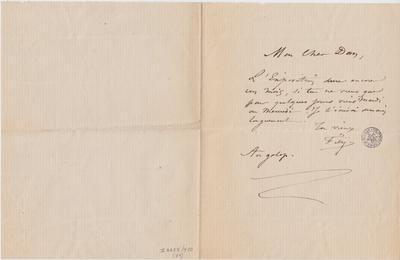 Mon cher Don,
L'Exposition dure encore
un mois, si tu ne viens que
pour quelques jours viens mardi
ou mercredi. Je t'écrirai demain
longuement.
Ton vieux
Fély
Au galop.